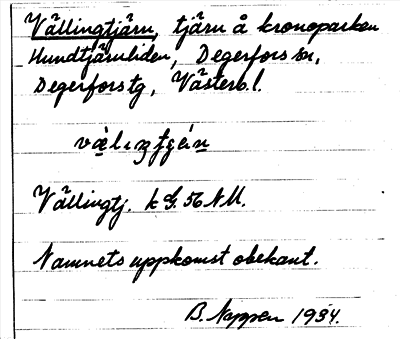 Vällingtjärn, tjärn å kronoparken
Hundtjärnliden, Degerfors sn,
Degerforstg, Västerb. l.
Vällingtj. k 56 NU.
Namnets uppkomst obekant.
B. Nyppen 1934.